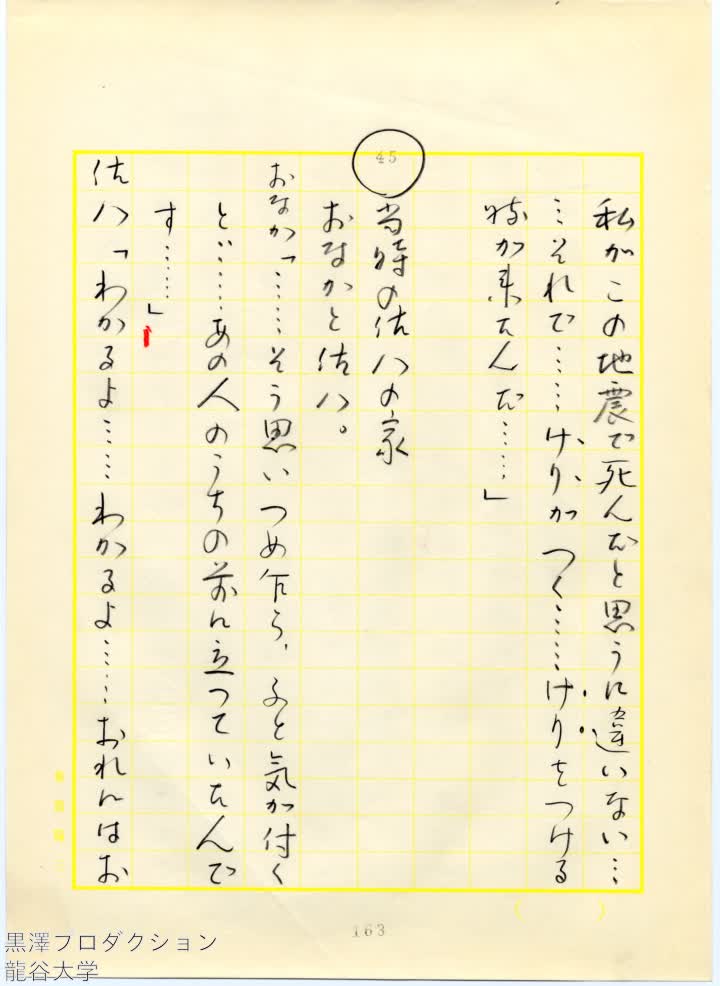 私がこの地震で死んだと思うに違いない…
…それで……けりがつく……けりをつける
時が来たんだ……」
45
当時の佐八の家
おなかと佐八。
おなか「……そう思いつめ乍ら、ふと気が付く
と……あの人のうちの前に立っていたんで
す……」
佐八「わかるよ……わかるよ……おれにはお
163
黒澤プロダクション
龍谷大学